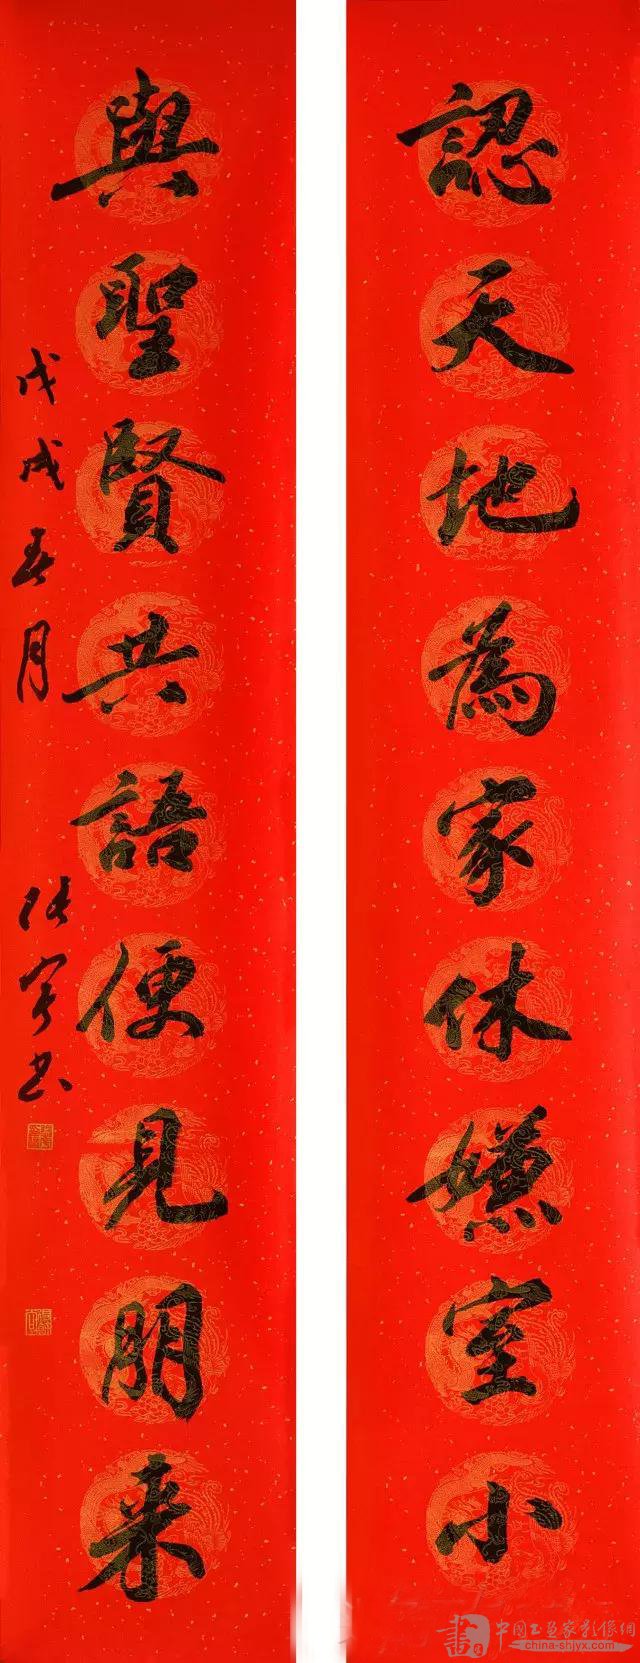 認天地為家休嫌室小
與聖賢共語便見朋來
戊戌春月
書
中國書畫家影像網
china-shjyx.com